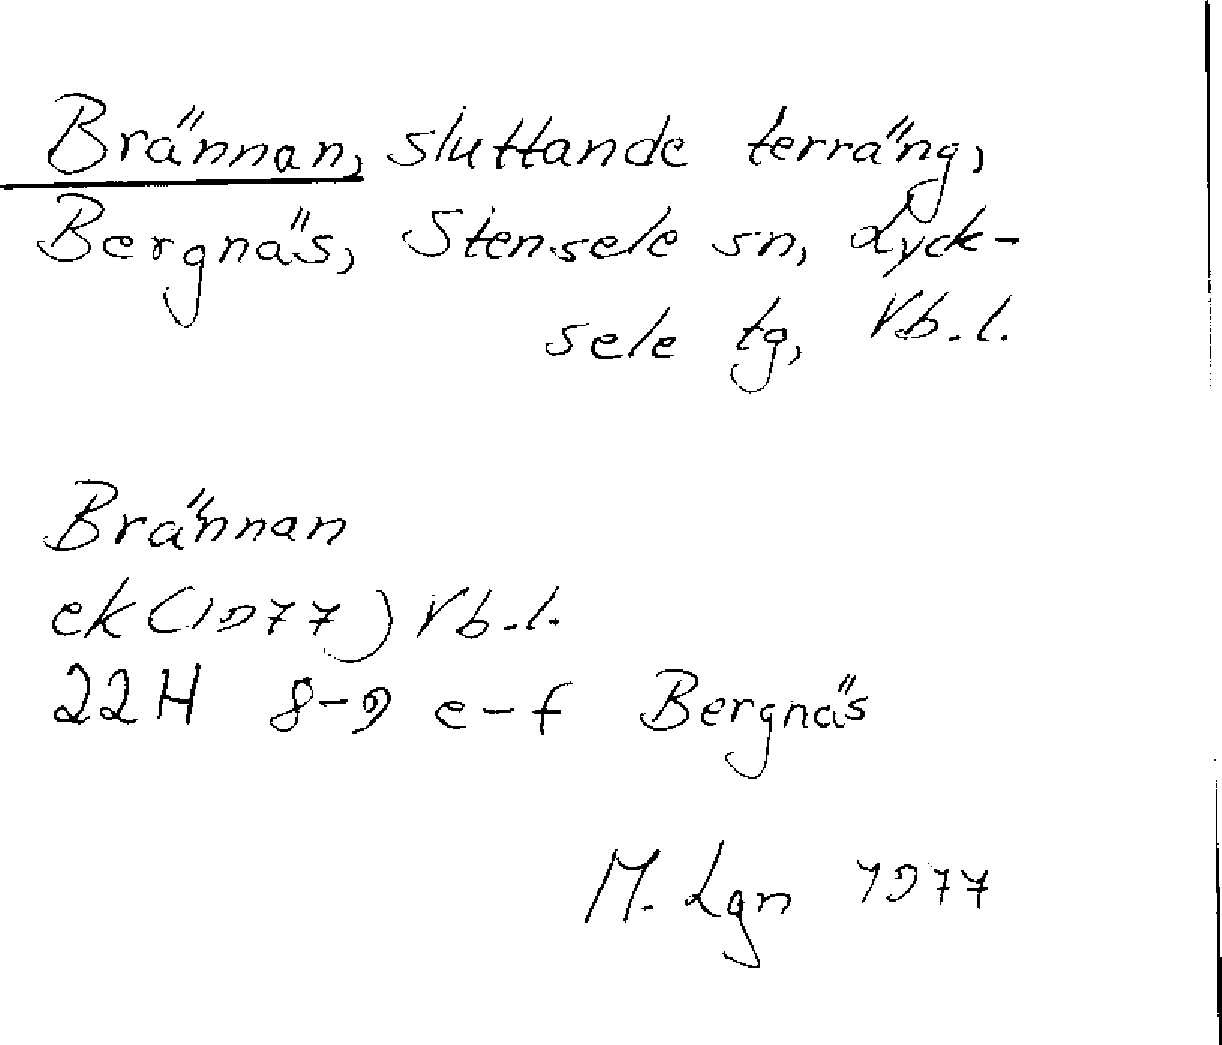 Brännan, sluttande terräng,
Bergnäs, Stensele sn, Lyck-
sele tg, Vb.l.
Brännan
ek (1977) Vb.l.
22H 8-9 e-f Bergnäs
M. Lgn 1977